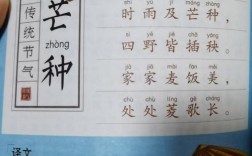 传统节气
芒
zhòng
种
shí yǔ jí máng zhòng
时雨及芒种，
sì yě jiē chā yāng
四野皆插秧。
jiā jiā mài fàn měi
家家麦饭美，
chù chù líng gē cháng
处处菱歌长。
译文